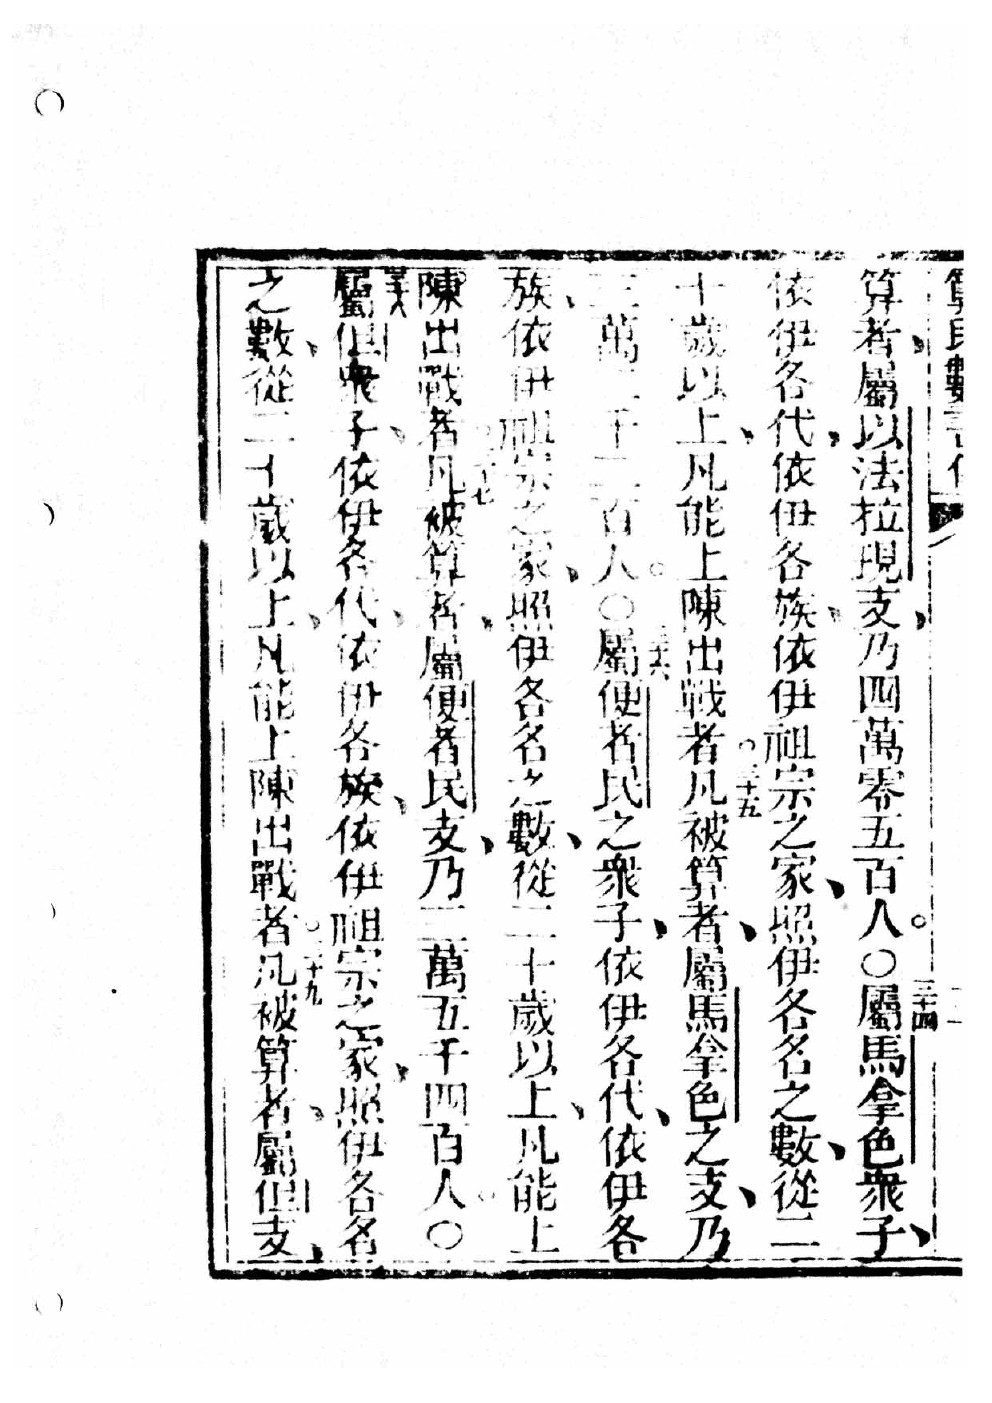 算民數書
算者、屬以法拉現支、乃四萬零五百人。○三十四屬馬拿色衆子、
依伊各代、依伊各族、依伊祖宗之家、照伊各名之數、從二
十歲以上、凡能上陳出戰者、○三十五凡被算者、屬馬拿色之支、乃
三萬二千二百人。○三十六屬便者民之衆子、依伊各代、依伊各
族、依伊祖宗之家、照伊各名之數、從二十歲以上、凡能上
陳出戰者、○三十七凡被算者、屬便者民支、乃三萬五千四百人。○
三十八屬但衆子、依伊各代、依伊各族、依伊祖宗之家、照伊各名
之數、從二十歲以上、凡能上陳出戰者、○三十九凡被算者、屬但支、